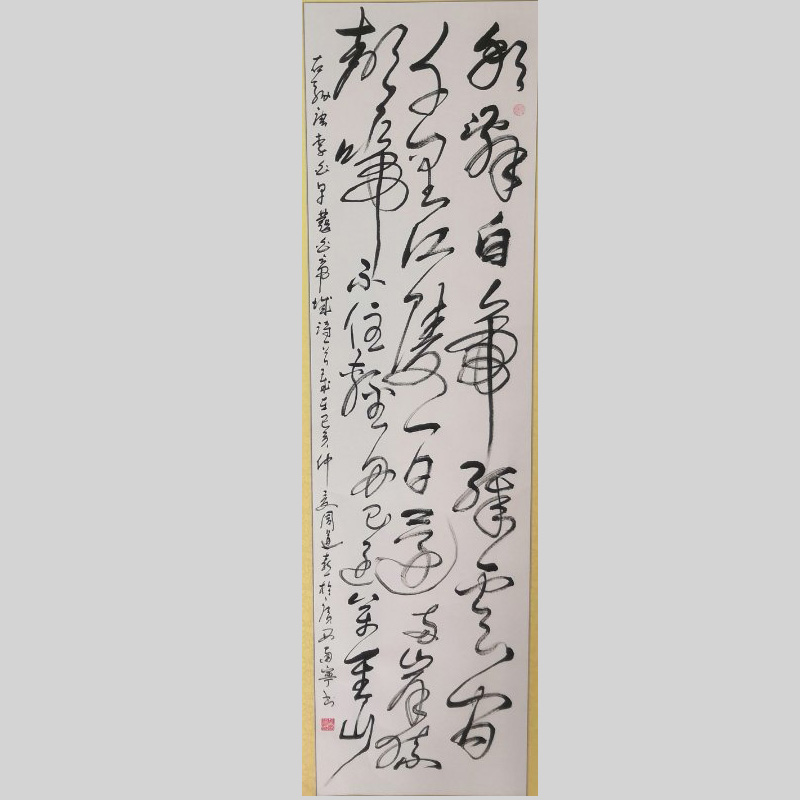 朝辭白帝綵雲間
千里江陵一日還兩岸猿
聲啼不住輕舟已過萬重山
右錄唐李白早發白帝城詩一首歲在己亥仲夏周道於廣西南寧書